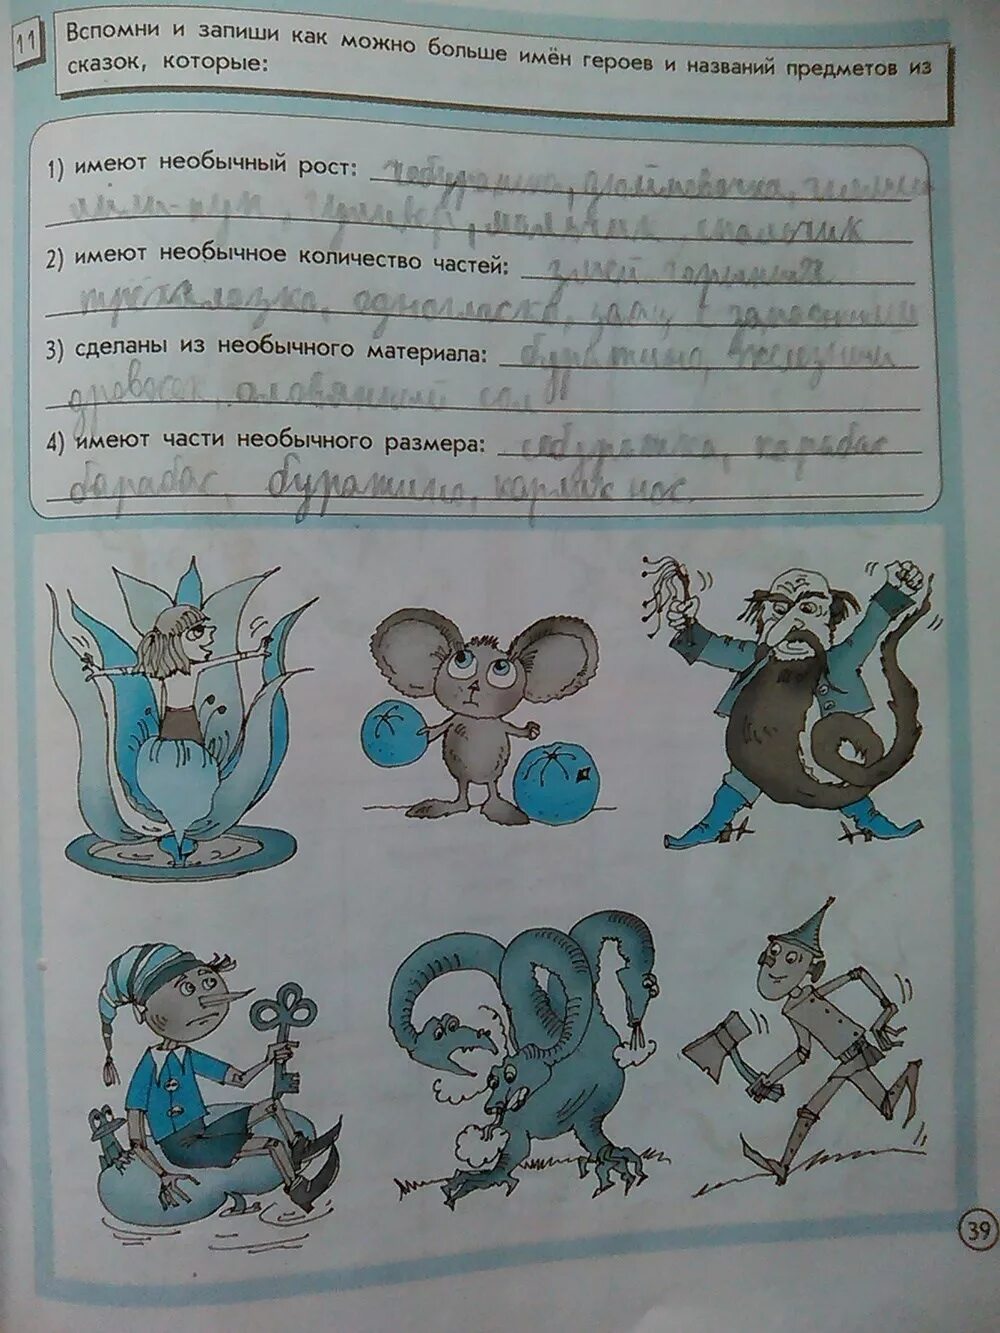 11
Вспомни и запиши как можно больше имён героев и названий предметов из
сказок, которые:
1) имеют необычный рост: чебурашка, дюймовочка,
мальчик спальчик
2) имеют необычное количество частей: змей горыныч
одноглазка, заяц с
3) сделаны из необычного материала: буратино, железный
дровосек, оловянный сол
4) имеют части необычного размера: чебурашка, карабас
барабас, буратино, карлик нос.
39